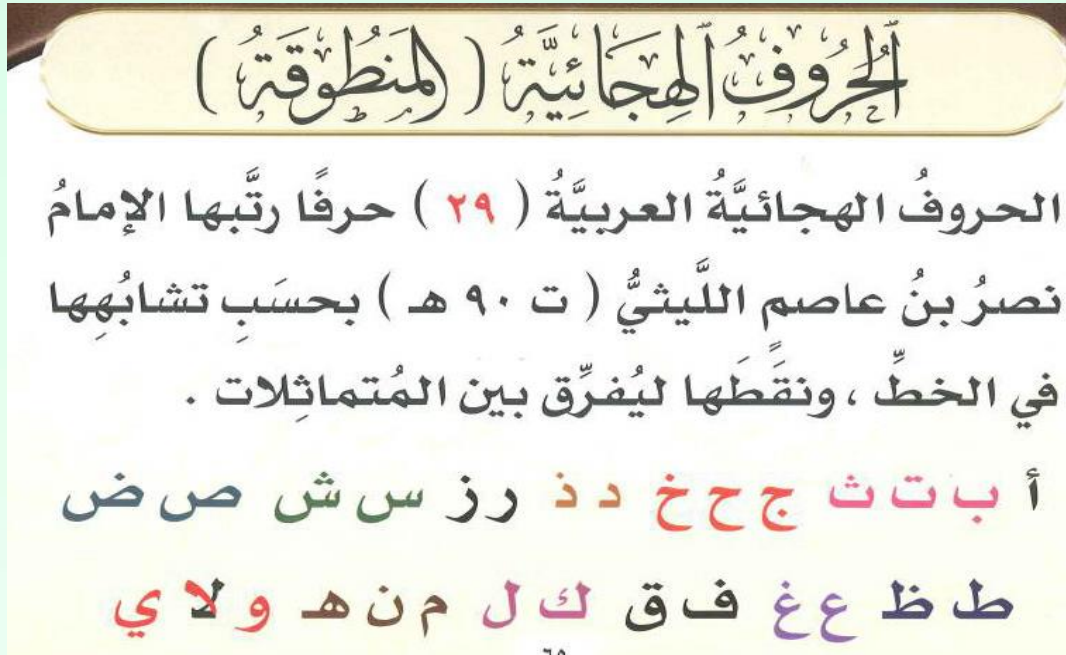 ٱلْحُرُوفُ ٱلْهِجَائِيَّةُ ( ٱلْمَنْطُوقَةُ )
الحروفُ الهجائيَّةُ العربيَّةُ ( ٢٩ ) حرفًا رتَّبها الإمامُ
نصرُ بنُ عاصم اللَّيثيُّ ( ت ٩٠ هـ ) بحسَبِ تشابُهِها
في الخطِّ ، ونقَّطَها ليُفرِّق بين المُتماثِلات .
أ ب ت ث ج ح خ د ذ ر ز س ش ص ض
ط ظ ع غ ف ق ك ل م ن هـ و لا ي